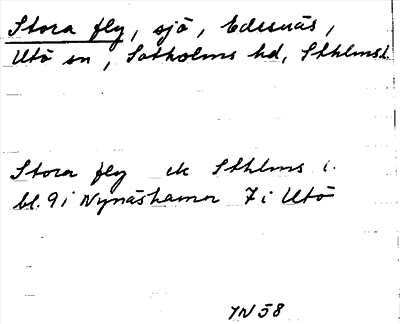 Stora fly, sjö, Edesnäs,
Utö sn, Sotholms hd, Sthlms l.
Stora fly ek Sthlms l.
bl. 9 i Nynäshamn 7 i Utö
IN 58